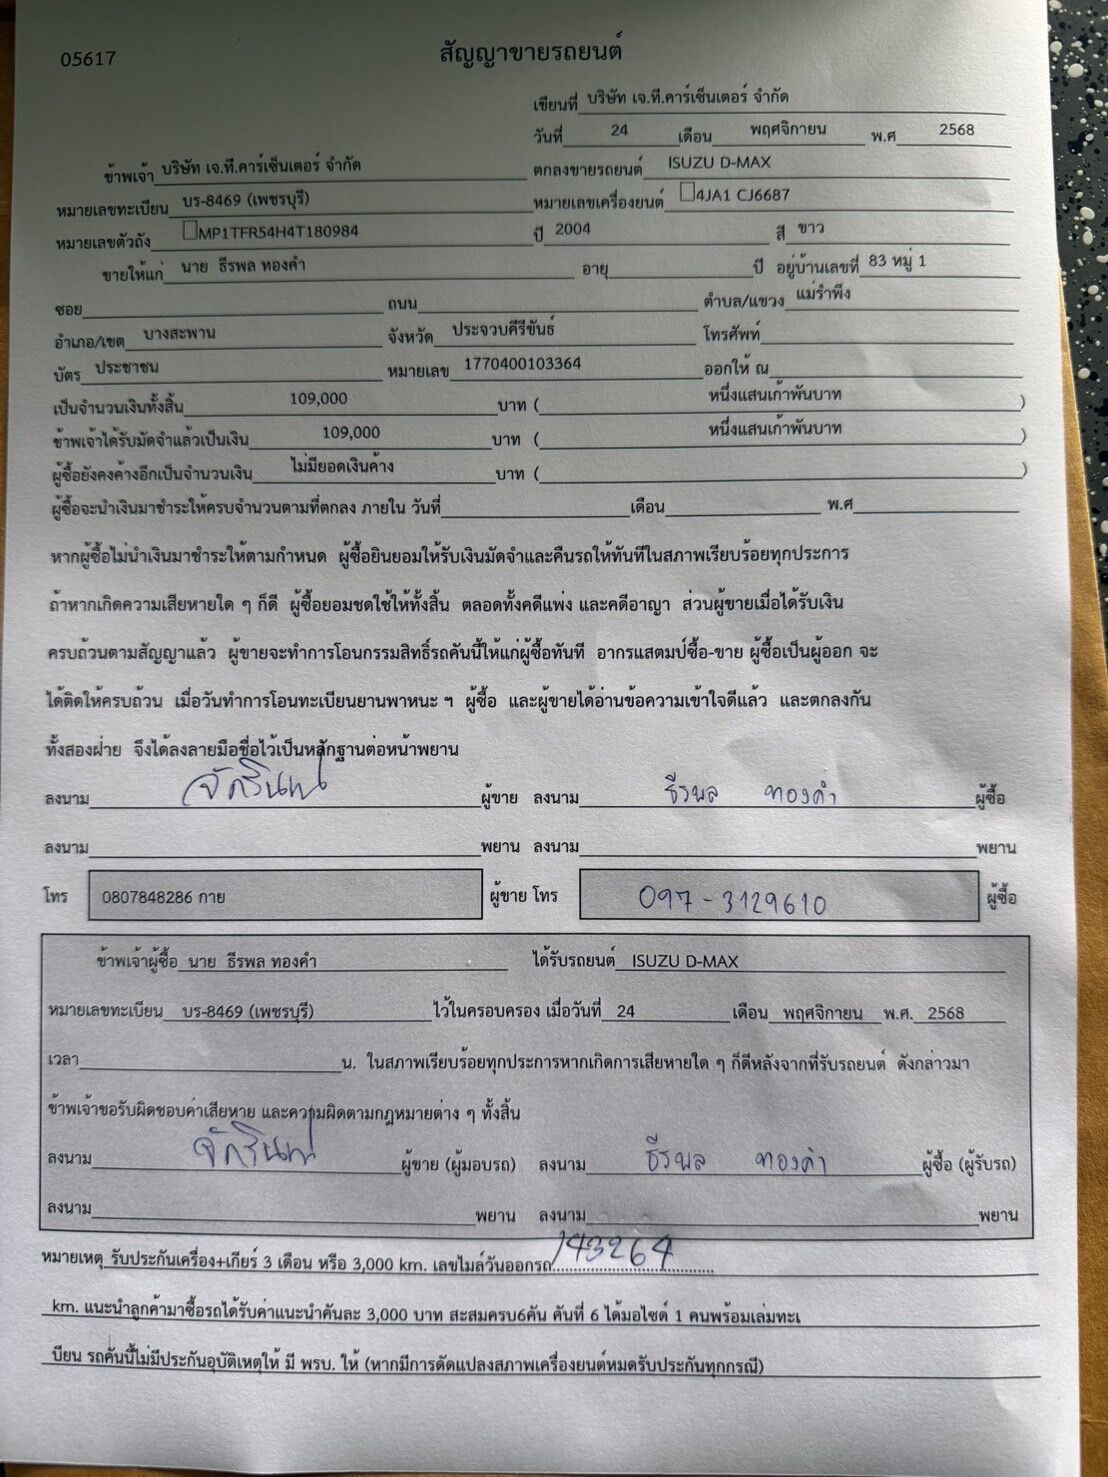 05617
สัญญาขายรถยนต์
เขียนที่ บริษัท เจ.ที.คาร์เซ็นเตอร์ จำกัด
วันที่ 24 เดือน พฤศจิกายน พ.ศ 2568
ข้าพเจ้า บริษัท เจ.ที.คาร์เซ็นเตอร์ จำกัด ตกลงขายรถยนต์ ISUZU D-MAX
หมายเลขทะเบียน บร-8469 (เพชรบุรี) หมายเลขเครื่องยนต์ 4JA1 CJ6687
หมายเลขตัวถัง MP1TFR54H4T180984 ปี 2004 สี ขาว
ขายให้แก่ นาย ธีรพล ทองคำ อายุ ปี อยู่บ้านเลขที่ 83 หมู่ 1
ซอย ถนน ตำบล/แขวง แม่รำพึง
อำเภอ/เขต บางสะพาน จังหวัด ประจวบคีรีขันธ์ โทรศัพท์
บัตร ประชาชน หมายเลข 1770400103364 ออกให้ ณ
เป็นจำนวนเงินทั้งสิ้น 109,000 บาท ( หนึ่งแสนเก้าพันบาท )
ข้าพเจ้าได้รับมัดจำแล้วเป็นเงิน 109,000 บาท ( หนึ่งแสนเก้าพันบาท )
ผู้ซื้อยังคงค้างอีกเป็นจำนวนเงิน ไม่มียอดเงินค้าง บาท ( )
ผู้ซื้อจะนำเงินมาชำระให้ครบจำนวนตามที่ตกลง ภายใน วันที่ เดือน พ.ศ
หากผู้ซื้อไม่นำเงินมาชำระให้ตามกำหนด ผู้ซื้อยินยอมให้รับเงินมัดจำและคืนรถให้ทันทีในสภาพเรียบร้อยทุกประการ
ถ้าหากเกิดความเสียหายใด ๆ ก็ดี ผู้ซื้อยอมชดใช้ให้ทั้งสิ้น ตลอดทั้งคดีแพ่ง และคดีอาญา ส่วนผู้ขายเมื่อได้รับเงิน
ครบถ้วนตามสัญญาแล้ว ผู้ขายจะทำการโอนกรรมสิทธิ์รถคันนี้ให้แก่ผู้ซื้อทันที อากรแสตมป์ซื้อ-ขาย ผู้ซื้อเป็นผู้ออก จะ
ได้ติดให้ครบถ้วน เมื่อวันทำการโอนทะเบียนยานพาหนะ ฯ ผู้ซื้อ และผู้ขายได้อ่านข้อความเข้าใจดีแล้ว และตกลงกัน
ทั้งสองฝ่าย จึงได้ลงลายมือชื่อไว้เป็นหลักฐานต่อหน้าพยาน
ลงนาม ผู้ขาย ลงนาม ธีรพล ทองคำ ผู้ซื้อ
ลงนาม พยาน ลงนาม พยาน
โทร 0807848286 กาย ผู้ขาย โทร 097-3129610 ผู้ซื้อ
ข้าพเจ้าผู้ซื้อ นาย ธีรพล ทองคำ ได้รับรถยนต์ ISUZU D-MAX
หมายเลขทะเบียน บร-8469 (เพชรบุรี) ไว้ในครอบครอง เมื่อวันที่ 24 เดือน พฤศจิกายน พ.ศ. 2568
เวลา น. ในสภาพเรียบร้อยทุกประการหากเกิดการเสียหายใด ๆ ก็ดีหลังจากที่รับรถยนต์ ดังกล่าวมา
ข้าพเจ้าขอรับผิดชอบค่าเสียหาย และความผิดตามกฎหมายต่าง ๆ ทั้งสิ้น
ลงนาม ผู้ขาย (ผู้มอบรถ) ลงนาม ธีรพล ทองคำ ผู้ซื้อ (ผู้รับรถ)
ลงนาม พยาน ลงนาม พยาน
หมายเหตุ รับประกันเครื่อง+เกียร์ 3 เดือน หรือ 3,000 km. เลขไมล์วันออกรถ 143264
km. แนะนำลูกค้ามาซื้อรถได้รับค่าแนะนำคันละ 3,000 บาท สะสมครบ6คัน คันที่ 6 ได้มอไซด์ 1 คนพร้อมเล่มทะเ
บียน รถคันนี้ไม่มีประกันอุบัติเหตุให้ มี พรบ. ให้ (หากมีการดัดแปลงสภาพเครื่องยนต์หมดรับประกันทุกกรณี)